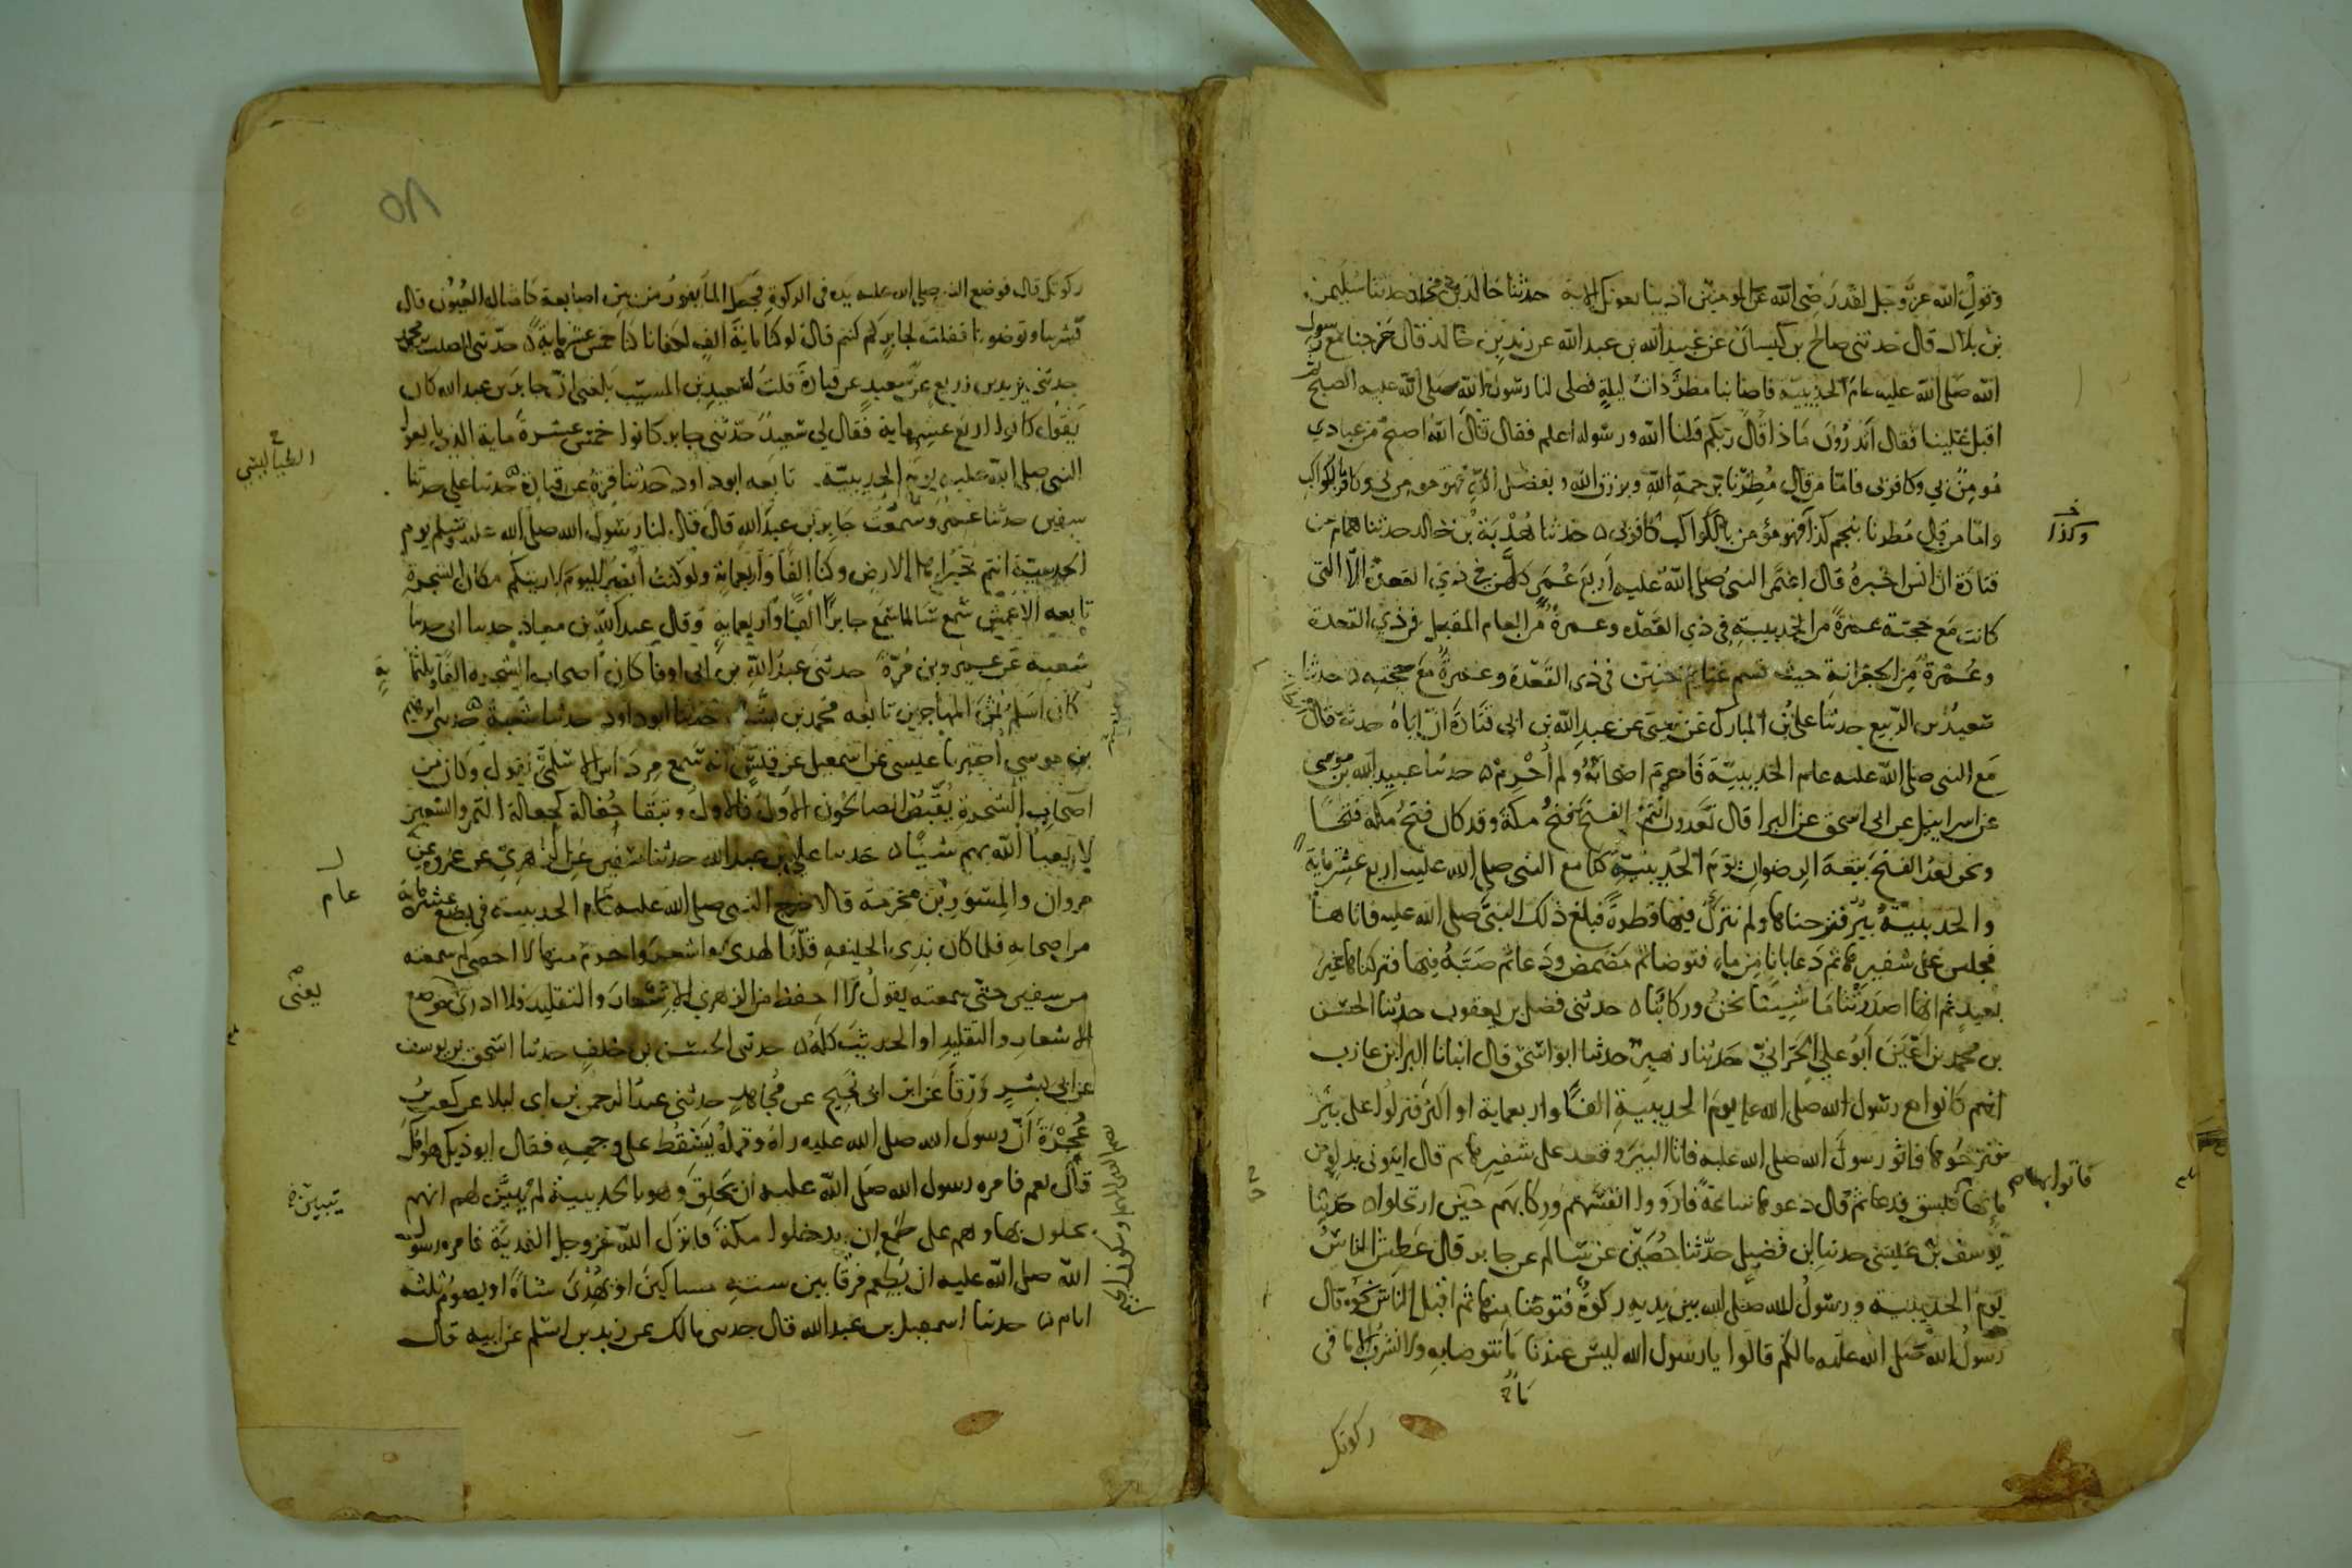 وقول الله عز وجل لقد رضي الله عن المومنين اذ يبايعونك الاية حدثنا خالد بن مخلد حدثنا سليمن
بن بلال قال حدثني صالح بن كيسان عن عبيد الله بن عبد الله عن زيد بن خالد قال خرجنا مع رسول
الله صلى الله عليه عام الحديبية فاصابنا مطر ذات ليلة فصلى لنا رسول الله صلى الله عليه الصبح ثم
اقبل علينا فقال اتدرون ماذا قال ربكم قلنا الله ورسوله اعلم فقال قال الله اصبح من عبادي
مومن بي وكافر بي فاما من قال مطرنا برحمة الله وبرزق الله وبفضل الله فهو مومن بي وكافر بالكواكب
واما من قال مطرنا بنجم كذا فهو مؤمن بالكواكب كافر بي حدثنا هدبة بن خالد حدثنا همام عن
وكذا
قتادة ان انسا اخبره قال اعتمر النبي صلى الله عليه اربع عمر كلهن في ذي القعدة الا التي
كانت مع حجته عمرة من الحديبية في ذي القعدة وعمرة من العام المقبل في ذي القعدة
وعمرة من الجعرانة حيث قسم غنايم حنين في ذي القعدة وعمرة مع حجته حدثنا
سعيد بن الربيع حدثنا علي بن المبارك عن يحيى عن عبد الله بن ابي قتادة ان اباه حدثه قال
مع النبي صلى الله عليه عام الحديبية فاحرم اصحابه ولم احرم حدثنا عبيد الله بن موسى
عن اسراييل عن ابي اسحق عن البرا قال تعدون انتم الفتح فتح مكة وقد كان فتح مكة فتحا
ونحن نعد الفتح بيعة الرضوان يوم الحديبية كنا مع النبي صلى الله عليه اربع عشرة ماية
والحديبية بير فنزحناها ولم نترك فيها قطرة فبلغ ذلك النبي صلى الله عليه فاتاها
فجلس على شفيرها ثم دعا بانا من ماء فتوضا ثم مضمض ودعا ثم صبه فيها فتركناها غير
بعيد ثم انها اصدرتنا ما شيتنا نحن وركابنا حدثني فضل بن يعقوب حدثنا الحسن
بن محمد بن اعين ابو علي الحراني حدثنا زهير حدثنا ابو اسحق قال انبانا البرا بن عازب
انهم كانوا مع رسول الله صلى الله عليه يوم الحديبية الفا واربعماية او اكثر فنزلوا على بير
فنزحوها فاتو رسول الله صلى الله عليه فاتا البير وقعد على شفيرها ثم قال ايتوني بدلو من
مايها فبسق فدعا ثم قال دعوها ساعة فارووا انفسهم وركابهم حتى ارتحلوا حدثنا
يوسف بن عيسى حدثنا ابن فضيل حدثنا حصين عن سالم عن جابر قال عطش الناس
يوم الحديبية ورسول الله صلى الله بين يديه ركوة فتوضا منها ثم اقبل الناس نحوه قال
رسول الله صلى الله عليه مالكم قالوا يا رسول الله ليس عندنا ما نتوضا به ولا نشرب الا ما في
ركوتك
٨٥
ركوتك قال فوضع النبي صلى الله عليه يده في الركوة فجعل الما يفور من بين اصابعه كامثال العيون قال
فشربنا وتوضونا فقلت لجابر كم كنتم قال لو كنا ماية الف لكفانا كنا خمس عشرة ماية حدثني الصلت بن محمد
حدثني يزيد بن زريع عن سعيد عن قتادة قلت لسعيد بن المسيب بلغني ان جابر بن عبد الله كان
يقول كانوا اربع عشرة ماية فقال لي سعيد حدثني جابر كانوا خمس عشرة ماية الذين بايعوا
النبي صلى الله عليه يوم الحديبية تابعه ابو داود حدثنا قرة عن قتادة حدثنا علي حدثنا
الطيالسي
سفين حدثنا عمرو سمعت جابر بن عبد الله قال قال لنا رسول الله صلى الله عليه وسلم يوم
الحديبية انتم خير اهل الارض وكنا الفا واربعماية ولو كنت ابصر اليوم لاريتكم مكان الشجرة
تابعه الاعمش سمع سالما سمع جابرا الفا واربعماية وقال عبيد الله بن معاذ حدثنا ابي حدثنا
شعبة عن عمرو بن مرة حدثني عبد الله بن ابي اوفا كان اصحاب الشجرة الفا وثلثماية
كان اسلم ثمن المهاجرين تابعه محمد بن بشار حدثنا ابو داود حدثنا شعبة حدثني ابرهيم
بن موسى اخبرنا عيسى عن اسمعيل عن قيس انه سمع مرداس الاسلمي يقول وكان من
اصحاب الشجرة يقبض الصالحون الاول فالاول وتبقا حفالة كحفالة التمر والشعير
لا يعبا الله بهم شيا حدثنا علي بن عبد الله حدثنا سفين عن الزهري عن عروة عن
مروان والمسور بن مخرمة قالا خرج النبي صلى الله عليه عام الحديبية في بضع عشرة ماية
عام
من اصحابه فلما كان بذي الحليفه قلد الهدى واشعر واحرم منها لا احصي كم سمعته
من سفين حتى سمعته يقول لا احفظ من الزهري الاشعار والتقليد فلا ادري موضع
يعنى
الاشعار والتقليد او الحديث كله حدثني الحسن بن خلف حدثنا اسحق بن يوسف
عن ابي بشر ورقا عن ابن ابي نجيح عن مجاهد حدثني عبد الرحمن بن ابي ليلا عن كعب بن
عجرة ان رسول الله صلى الله عليه راه وقمله يسقط على وجهه فقال ايوذيك هوامك
قال نعم فامره رسول الله صلى الله عليه ان يحلق وهو بالحديبية لم يبين لهم انهم
يتبين
يحلون بها وهم على طمع ان يدخلوا مكة فانزل الله عز وجل الفدية فامره رسول
الله صلى الله عليه ان يطعم فرقا بين ستة مساكين او يهدي شاة او يصوم ثلثة
ايام حدثنا اسمعيل بن عبد الله قال حدثني مالك عن زيد بن اسلم عن ابيه قال